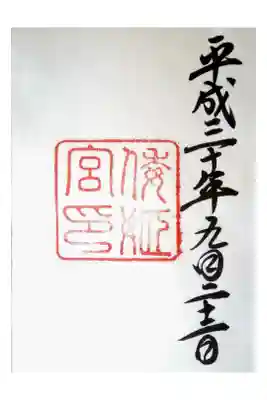 平成三十年九月二十二日
倭姫宮印